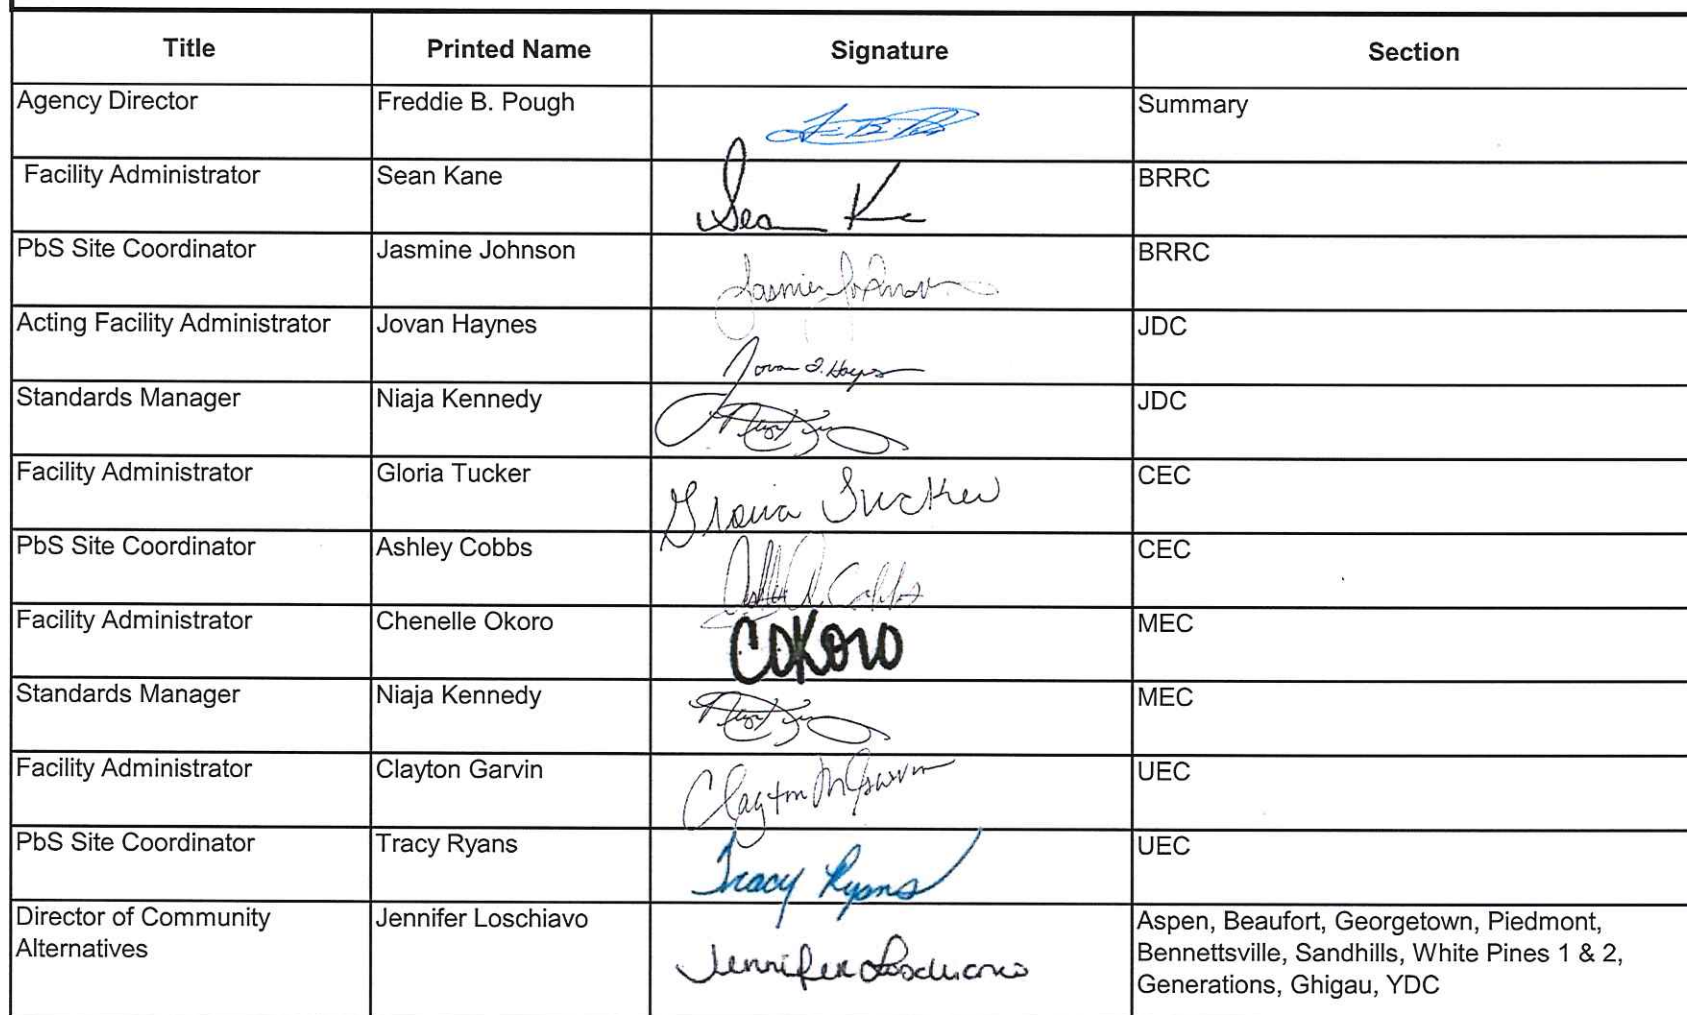 Title Printed Name Signature Section
Agency Director Freddie B. Pough Summary
Facility Administrator Sean Kane Sean K BRRC
PbS Site Coordinator Jasmine Johnson Jasmine Johnson BRRC
Acting Facility Administrator Jovan Haynes Jovan J. Haynes JDC
Standards Manager Niaja Kennedy JDC
Facility Administrator Gloria Tucker Gloria Tucker CEC
PbS Site Coordinator Ashley Cobbs Cobbs CEC
Facility Administrator Chenelle Okoro COKORO MEC
Standards Manager Niaja Kennedy MEC
Facility Administrator Clayton Garvin Clayton M Garvin UEC
PbS Site Coordinator Tracy Ryans Tracy Ryans UEC
Director of Community Jennifer Loschiavo Jennifer Loschiavo Aspen, Beaufort, Georgetown, Piedmont,
Alternatives Bennettsville, Sandhills, White Pines 1 & 2,
Generations, Ghigau, YDC